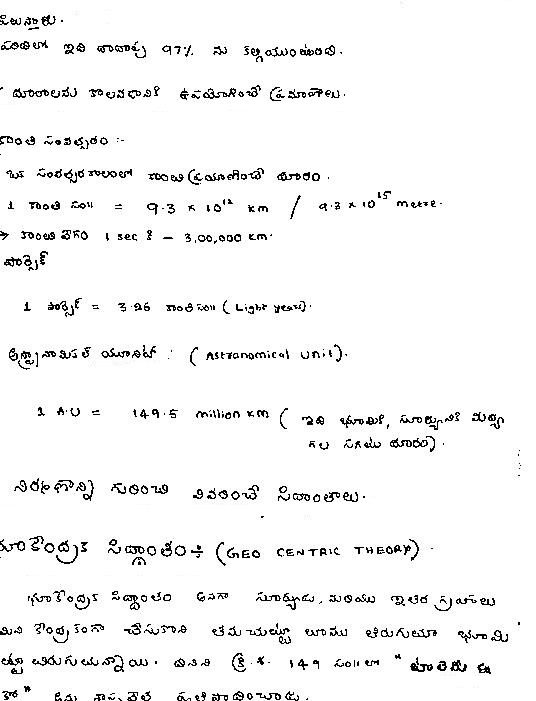 పిలుస్తారు.
ఇది దాదాపు 97% ను కల్గియుంటుంది.
దూరాలను కొలవడానికి ఉపయోగించే ప్రమాణాలు.
కాంతి సంవత్సరం :-
ఒక సంవత్సర కాలంలో కాంతి ప్రయాణించే దూరం.
1 కాంతి సం॥ = 9.3 × 10¹² km / 9.3 × 10¹⁵ metre.
→ కాంతి వేగం 1 sec కి – 3,00,000 km.
పార్సెక్
1 పార్సెక్ = 3.26 కాంతి సం॥ ( Light years).
ఆస్ట్రనామికల్ యూనిట్ : ( Astranomical Unit).
1 A.U = 149.5 million km ( ఇది భూమికి, సూర్యునికి మధ్య
గల సగటు దూరం).
గురించి వివరించే సిద్ధాంతాలు.
భూకేంద్రక సిద్ధాంతం÷ (GEO CENTRIC THEORY) .
భూకేంద్రక సిద్ధాంతం అనగా సూర్యుడు, మరియు ఇతర గ్రహాలు
కేంద్రకంగా చేసుకొని తమచుట్టూ తాము తిరుగుతూ భూమి
చుట్టూ తిరుగుతున్నాయి. దీనిని క్రీ.శ. 149 సం॥లో "
" ప్రతిపాదించాడు.